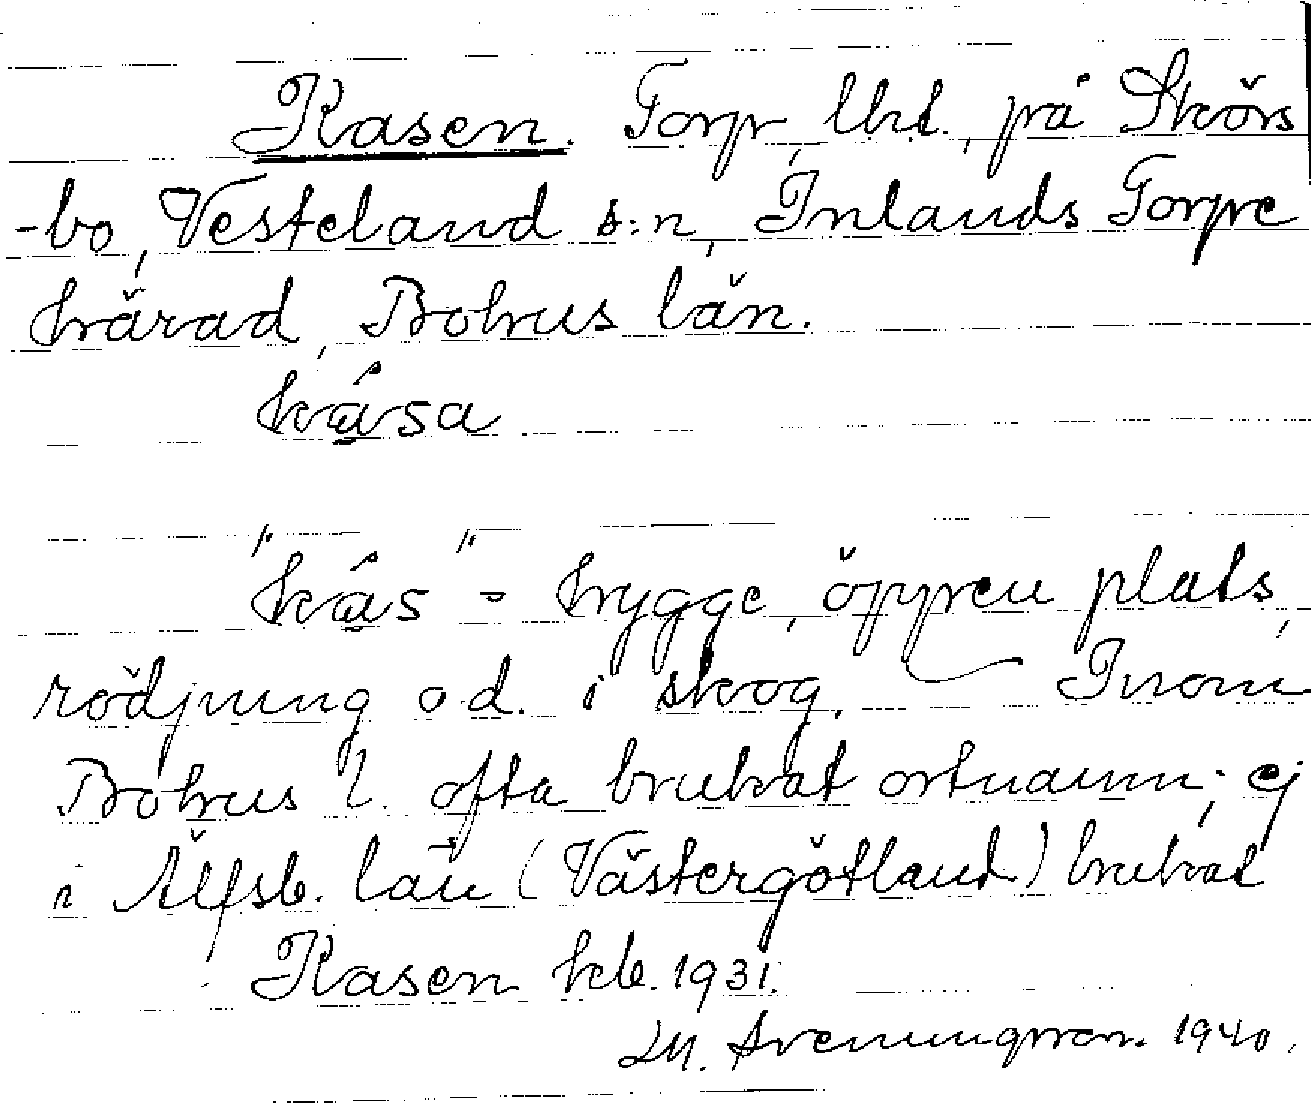 Kasen. Torp, lht., på Skörs
-bo, Vesteland s:n, Inlands Torpe
härad, Bohus län.
kása
"kás" = hygge, öppen plats,
rödjning o d. i skog. — Inom
Bohus l. ofta brukat ortnamn; ej
i Älfsb. län (Västergötland) brukat
Kasen kb. 1931.
1940.